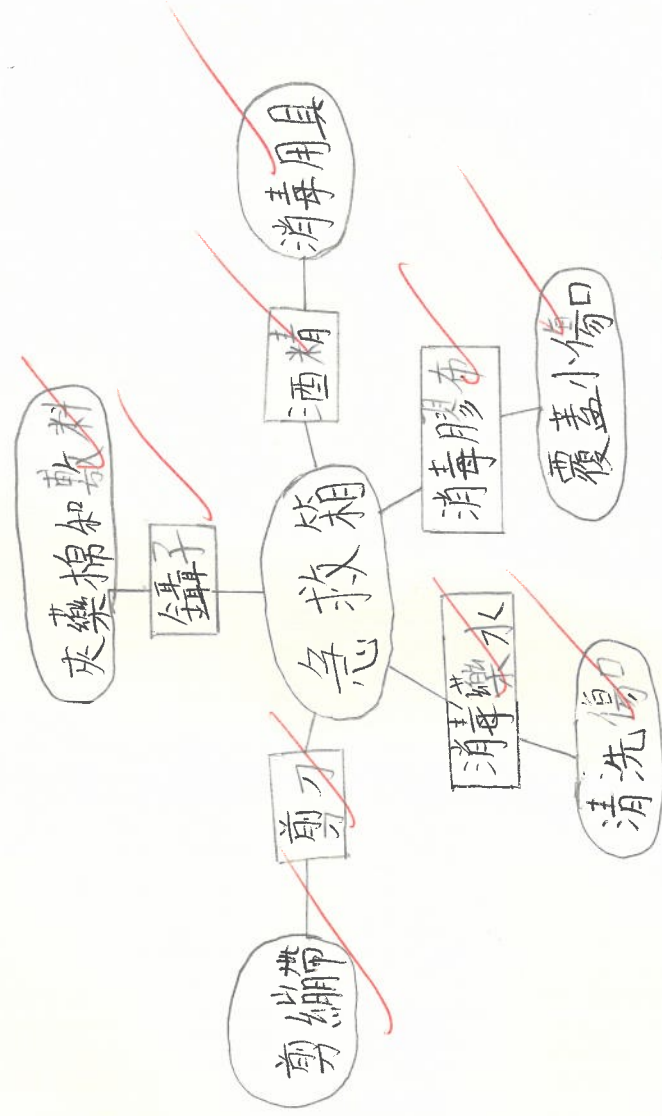 急救箱
鑷子
夾藥棉和敷料
酒精
消毒用具
消毒膠布
覆蓋小傷口
消毒藥水
清洗傷口
剪刀
剪繃帶